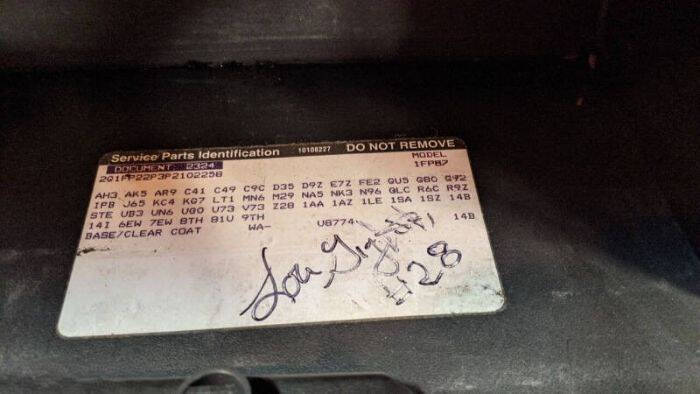 Service Parts Identification 10108227 DO NOT REMOVE
DOCUMENT: 2324 MODEL
2G1FP22P3P2102258 1FP87
AH3 AK5 AR9 C41 C49 C9C D35 D9Z E7Z FE2 QU5 G80 G92
IPB J65 KC4 KG7 LT1 MN6 M29 NA5 NK3 N96 GLC R6C R9Z
STE UB3 UN6 UGO U73 V73 Z28 1AA 1AZ 1LE 1SA 1SZ 14B
14I 6EW 7EW 8TH 81U 9TH
BASE/CLEAR COAT WA- U8774 14B
Lou
#28